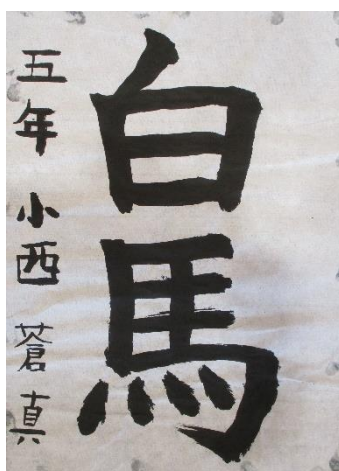 白馬
五年 小西 蒼真